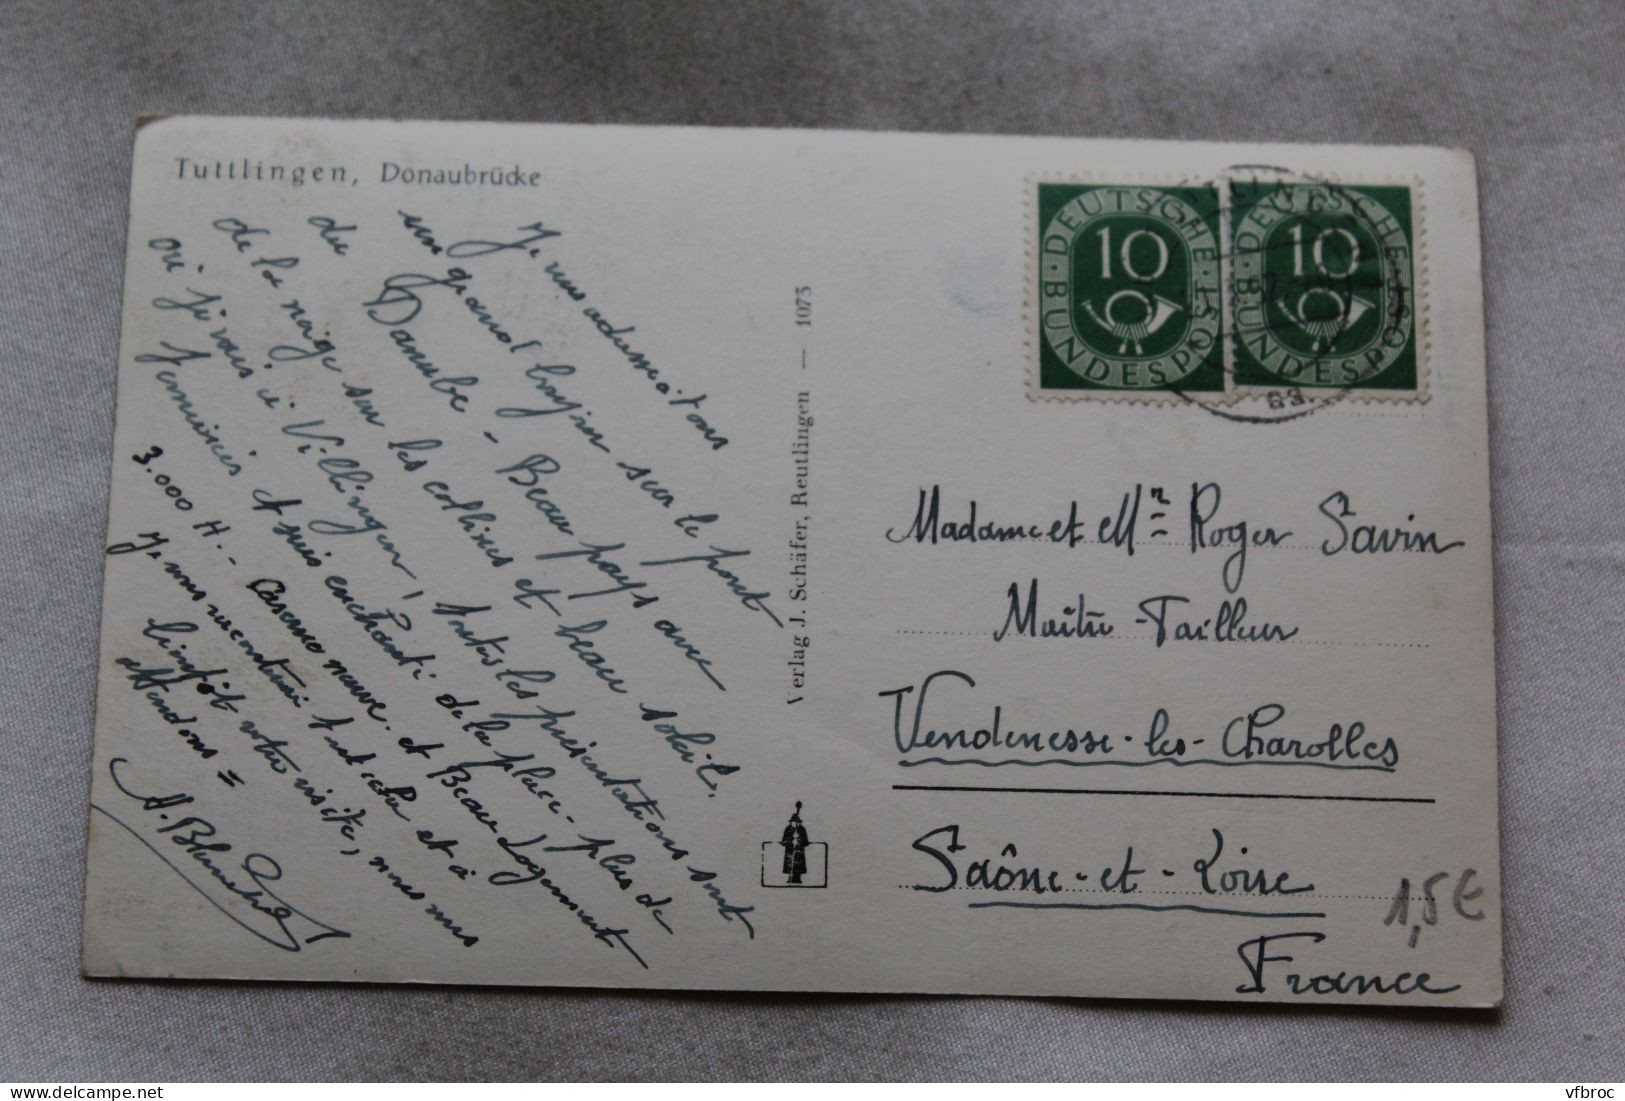 Tuttlingen, Donaubrücke
Je vous adresse à tous
un grand bonjour sur le pont
du Danube - Beau pays avec
de la neige sur les collines et beau soleil.
où j'ai Villingen, toutes les présentations sont
terminées et suis enchanté de la place - plus de
3.000 H. - Caserne neuve et Beau Logement
Je vous raconterai tout cela et à
bientôt votre visite, nous vous
attendons =
A. Blanchet
Verlag J. Schäfer, Reutlingen — 1073
DEUTSCHE BUNDESPOST
10
DEUTSCHE BUNDESPOST
10
Madame et Mr Roger Savin
Maître-Tailleur
Vendenesse-les-Charolles
Saône-et-Loire
France
1,5€
vfbroc